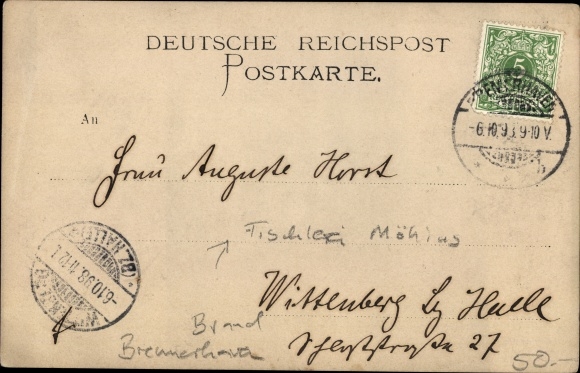 DEUTSCHE REICHSPOST
POSTKARTE.
5
An
-6.10.9 9-10V.
Frau Auguste Horst
Tischlerei Möbius
(BZ. HALLE)
-6.10.98. 11-12
Wittenberg Bz Halle
Brand
Bremerhaven
27
50.-